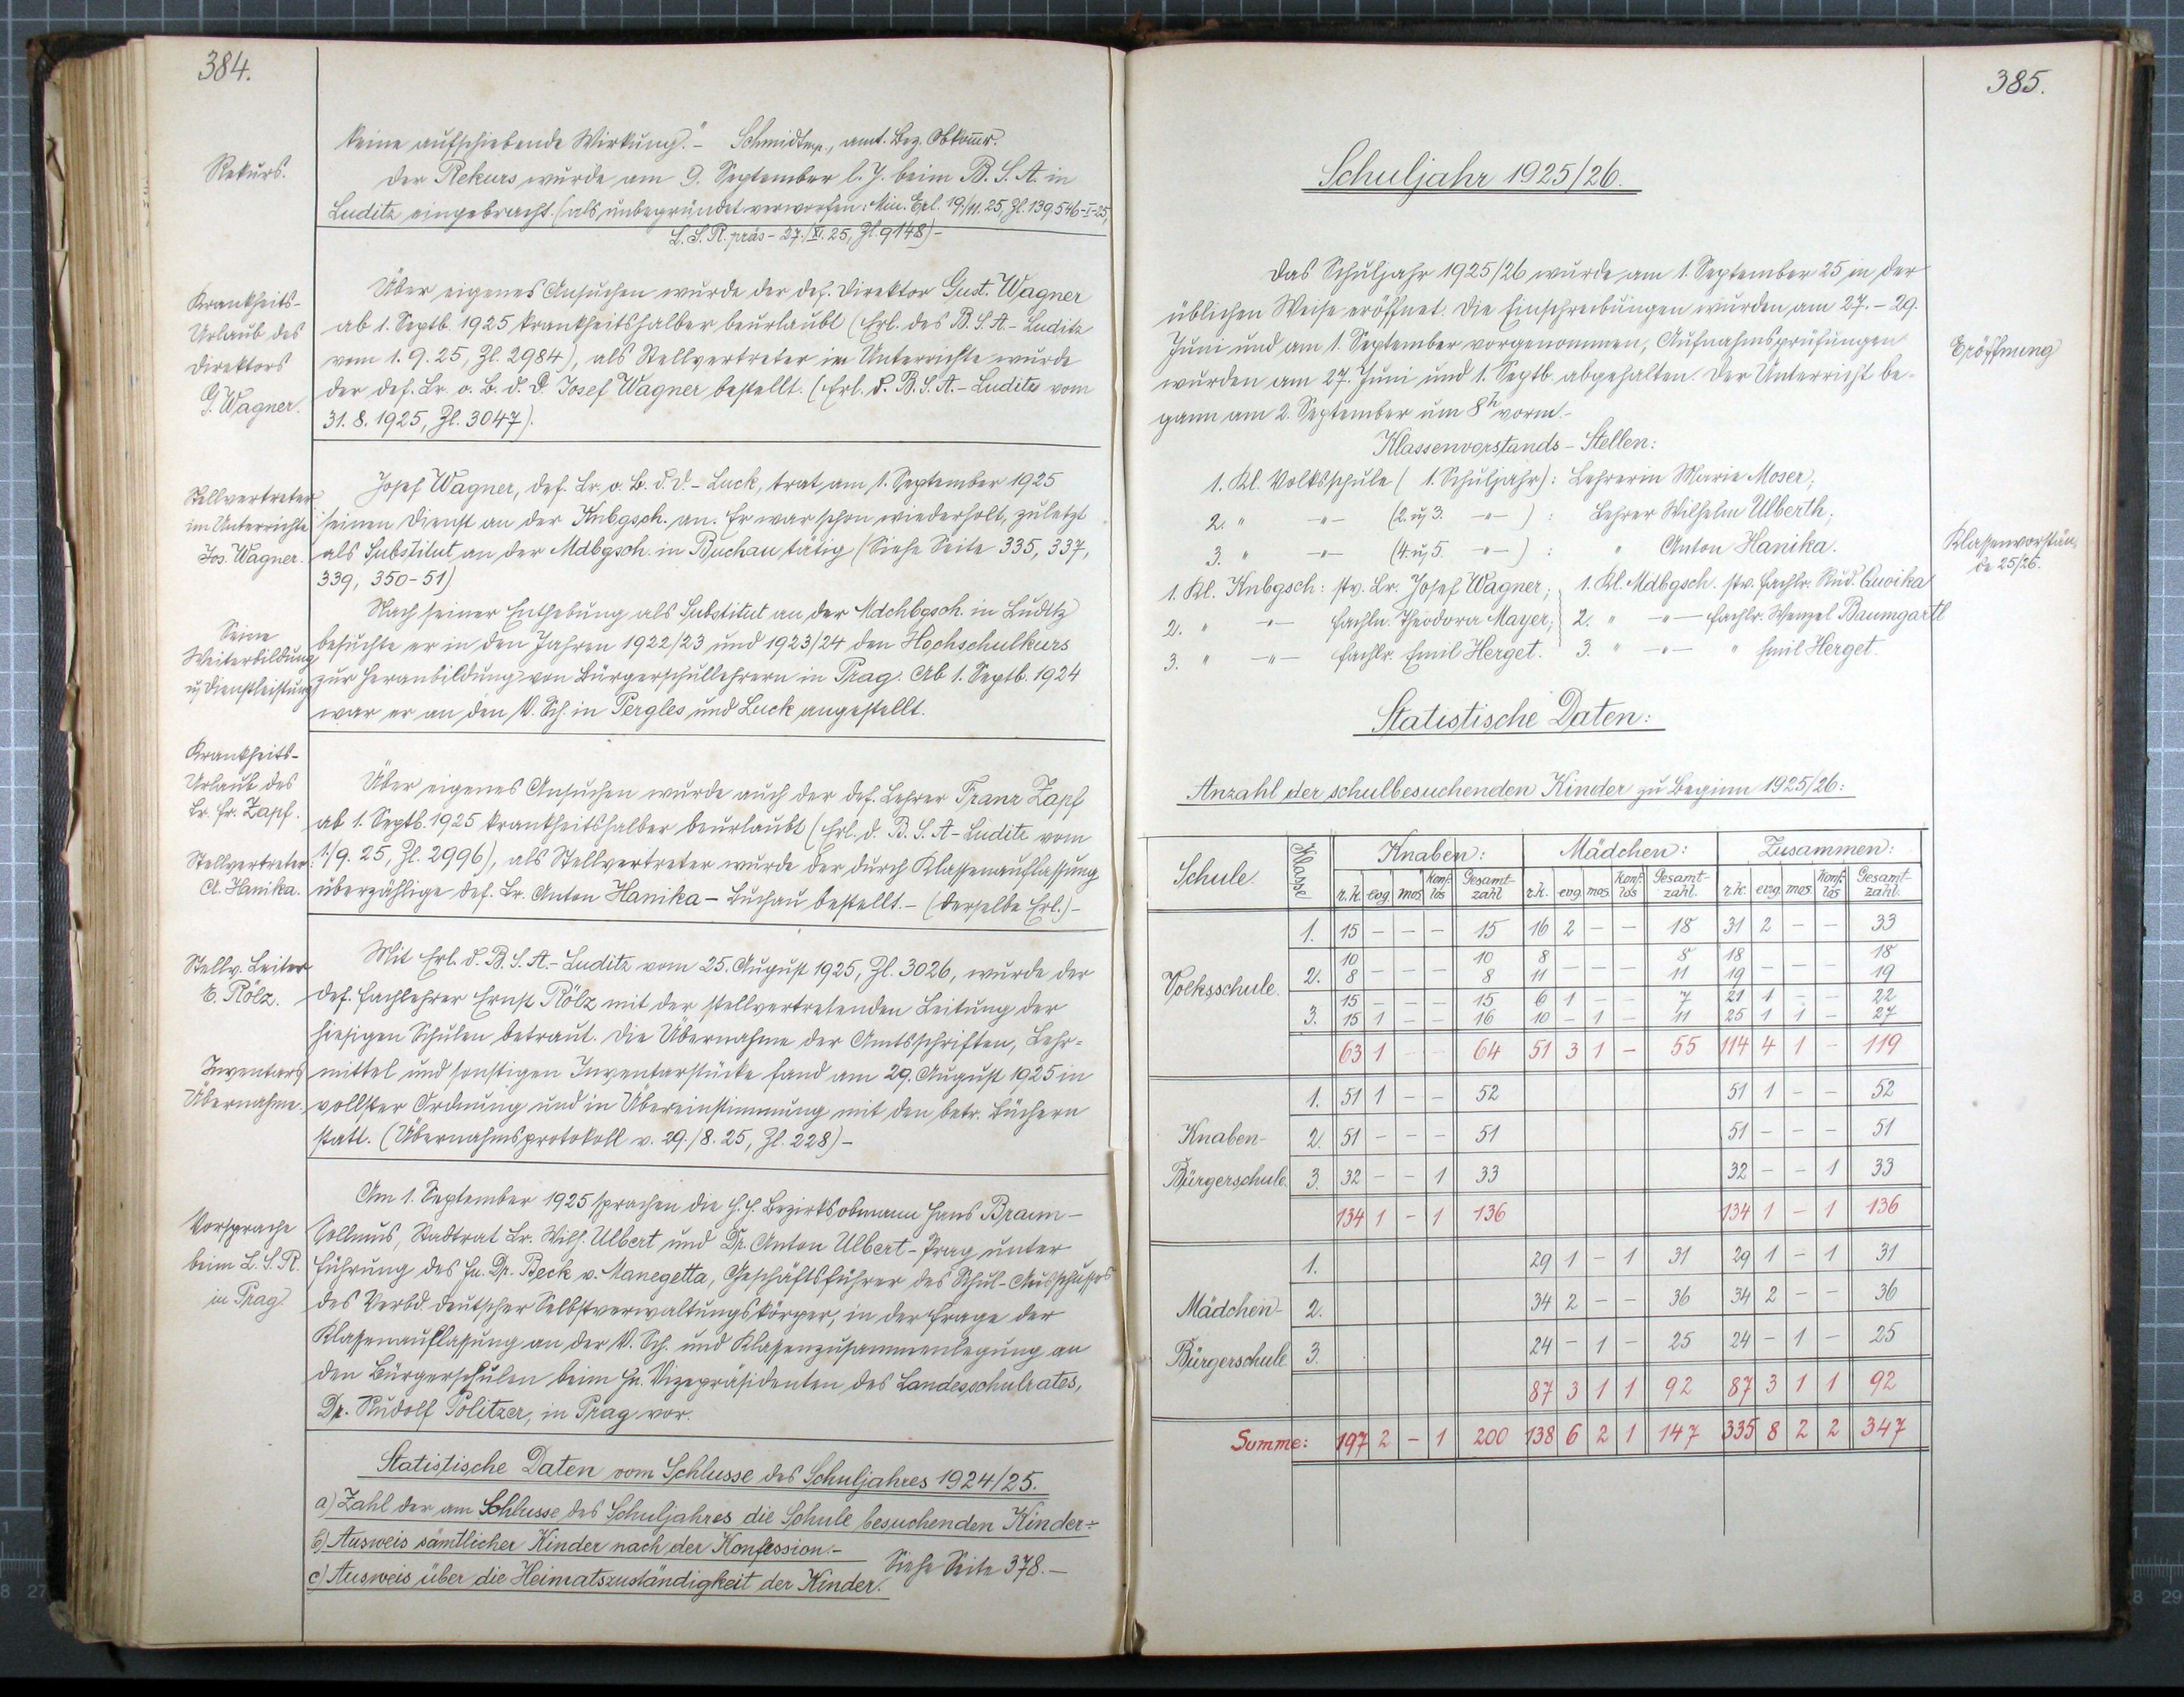 384.
keine aufschiebende Wirkung." - Schmidt mp., amt. Bez. Obkomr.
Rekurs.
Der Rekurs wurde am 9. September l. J. beim B. S. A. in
Luditz eingebracht. (als unbegründet verworfen: Min. Erl. 19./11. 25, Zl. 139.546-I-25,
L. S. R. präs - 27./XI. 25, Zl. 9148) -
Krankheits-
Urlaub des
Direktors
G. Wagner.
Über eigenes Ansuchen wurde der def. Direktor Gust. Wagner
ab 1. Septb. 1925 krankheitshalber beurlaubt (Erl. des B. S. A. - Luditz
vom 1. 9. 25, Zl. 2984), als Stellvertreter im Unterrichte wurde
der def. Lr. o. B. d. D. Josef Wagner bestellt. (Erl. d. B. S. A. - Luditz vom
31. 8. 1925, Zl. 3047).
Stellvertreter
im Unterrichte
Jos. Wagner.
Josef Wagner, def. Lr. o. B. d. D. - Luck, trat am 1. September 1925
seinen Dienst an der Knbgsch. an. Er war schon wiederholt, zuletzt
als Substitut an der Mdbgsch. in Buchau tätig (Siehe Seite 335, 337,
339, 350-51)
Seine
Weiterbildung
u. Dienstleistung
Nach seiner Enthebung als Substitut an der Mdchbgsch. in Luditz
besuchte er in den Jahren 1922/23 und 1923/24 den Hochschulkurs
zur Heranbildung von Bürgerschullehrern in Prag. Ab 1. Septb. 1924
war er an den V. Sch. in Pergles und Luck angestellt.
Krankheits-
Urlaub des
Lr. Fr. Zapf.
Stellvertreter:
A. Hanika.
Über eigenes Ansuchen wurde auch der def. Lehrer Franz Zapf
ab 1. Septb. 1925 krankheitshalber beurlaubt (Erl. d. B. S. A - Luditz vom
1./9. 25, Zl. 2996), als Stellvertreter wurde der durch Klassenauflassung
überzählige def. Lr. Anton Hanika - Buchau bestellt. - (derselbe Erl.) -
Stellv. Leiter
E. Rölz.
Mit Erl. d. B. S. A. - Luditz vom 25. August 1925, Zl. 3026, wurde der
def. Fachlehrer Ernst Rölz mit der stellvertretenden Leitung der
hiesigen Schulen betraut. Die Übernahme der Amtsschriften, Lehr-
Inventars
Übernahme.
mittel und sonstigen Inventarstücke fand am 29. August 1925 in
vollster Ordnung und in Übereinstimmung mit den betr. Büchern
statt. (Übernahmsprotokoll v. 29./8. 25, Zl. 228) -
Vorsprache
beim L. S. R.
in Prag.
Am 1. September 1925 sprachen die H. H. Bezirksobmann Hans Braun -
Sollmus, Stadtrat Lr. Wilh. Ulbert und Dr. Anton Ulbert - Prag unter
Führung des Hn. Dr. Beck v. Manegetta, Geschäftsführer des Schul-Ausschusses
des Verbd. deutscher Selbstverwaltungskörper, in der Frage der
Klassenauflassung an der V. Sch. und Klassenzusammenlegung an
den Bürgerschulen beim Hn. Vizepräsidenten des Landesschulrates,
Dr. Rudolf Politzer, in Prag vor.
Statistische Daten vom Schlusse des Schuljahres 1924/25.
a) Zahl der am Schlusse des Schuljahres die Schule besuchenden Kinder -
b) Ausweis sämtlicher Kinder nach der Konfession. -
c) Ausweis über die Heimatszuständigkeit der Kinder. Siehe Seite 378. -
385.
Schuljahr 1925/26.
Das Schuljahr 1925/26 wurde am 1. September 25 in der
üblichen Weise eröffnet. Die Einschreibungen wurden am 27. - 29.
Juni und am 1. September vorgenommen, Aufnahmsprüfungen
Eröffnung
wurden am 27. Juni und 1. Septb. abgehalten. Der Unterricht be-
gann am 2. September um 8h vorm. -
Klassenvorstands - Stellen:
1. Kl. Volksschule (1. Schuljahr): Lehrerin Marie Moser;
2. " -"- (2. u. 3. -"-) : Lehrer Wilhelm Ulberth;
3. " -"- (4. u. 5. -"-) : " Anton Hanika.
Klassenvorstän-
de 25/26.
1. Kl. Knbgsch: stv. Lr. Josef Wagner; 1. Kl. Mdbgsch. stv. Fachlr. Rud. Cwika
2. " -"- Fachln. Theodora Mayer; 2. " -"- Fachlr. Wenzel Baumgartl
3. " -"- Fachlr. Emil Herget. 3. " -"- " Emil Herget.
Statistische Daten:
Anzahl der schulbesuchenden Kinder zu Beginn 1925/26:
Schule. Klasse Knaben: Mädchen: Zusammen:
r.k. evg. mos. Konf. los Gesamt-zahl r.k. evg. mos. Konf. los Gesamt-zahl. r.k. evg. mos. Konf. los Gesamt-zahl.
1. 15 - - - 15 16 2 - - 18 31 2 - - 33
10 10 8 8 18 18
Volksschule. 2. 8 - - - 8 11 - - - 11 19 - - - 19
15 - - - 15 6 1 - - 7 21 1 - - 22
3. 15 1 - - 16 10 - 1 - 11 25 1 1 - 27
63 1 - - 64 51 3 1 - 55 114 4 1 - 119
1. 51 1 - - 52 51 1 - - 52
Knaben- 2. 51 - - - 51 51 - - - 51
Bürgerschule. 3. 32 - - 1 33 32 - - 1 33
134 1 - 1 136 134 1 - 1 136
1. 29 1 - 1 31 29 1 - 1 31
Mädchen- 2. 34 2 - - 36 34 2 - - 36
Bürgerschule 3. 24 - 1 - 25 24 - 1 - 25
87 3 1 1 92 87 3 1 1 92
Summe: 197 2 - 1 200 138 6 2 1 147 335 8 2 2 347